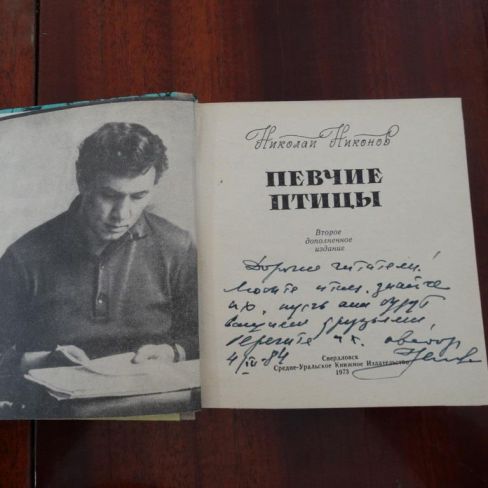 Николай Никонов
ПЕВЧИЕ
ПТИЦЫ
Второе
дополненное
издание
Дорогие читатели!
Любите птиц, знайте
их, пусть они будут
вашими друзьями,
берегите их. автор
4/IV 84
Свердловск
Средне-Уральское Книжное Издательство
1973